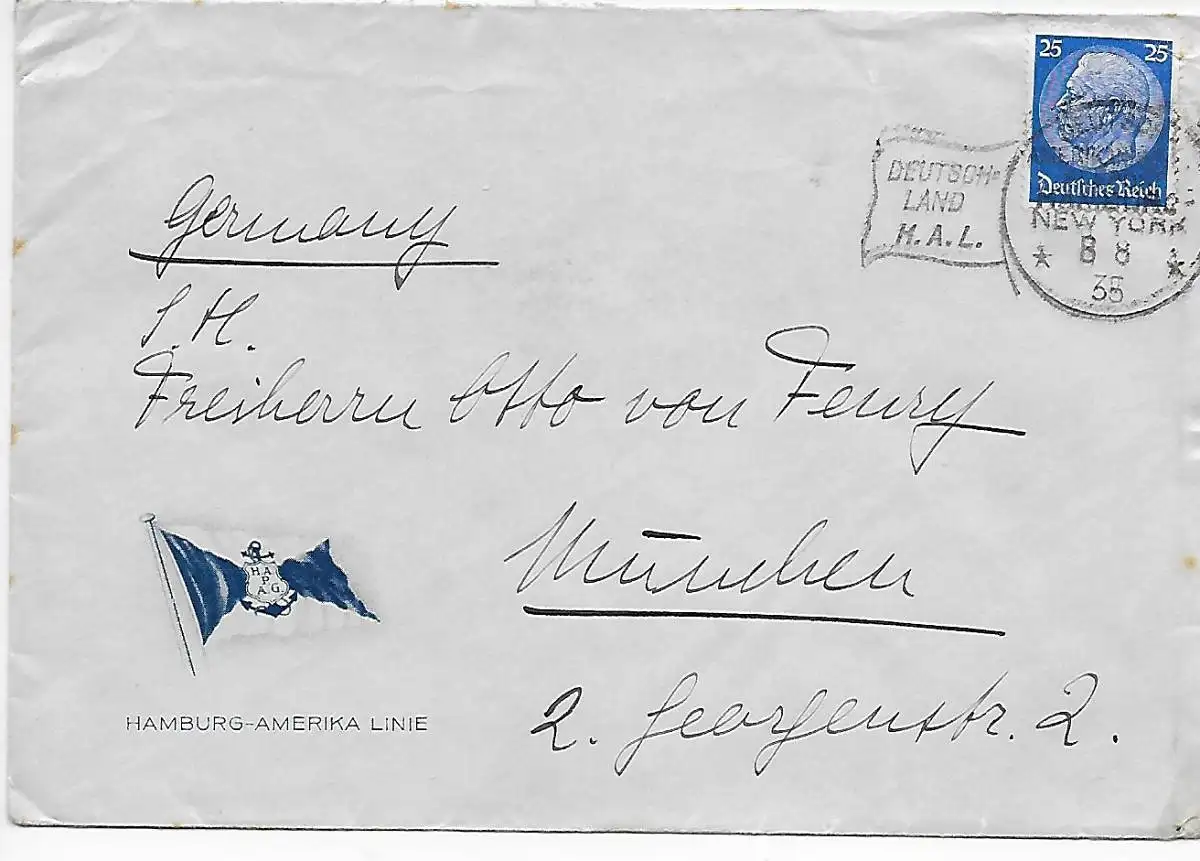 25 25
Deutsches Reich
DEUTSCH-
LAND
H.A.L.
NEW YORK
8 8
35
Germany
S.H.
Freiherrn Otto von Feury
München
2. Georgenstr. 2.
HA
P
A.G.
HAMBURG-AMERIKA LINIE